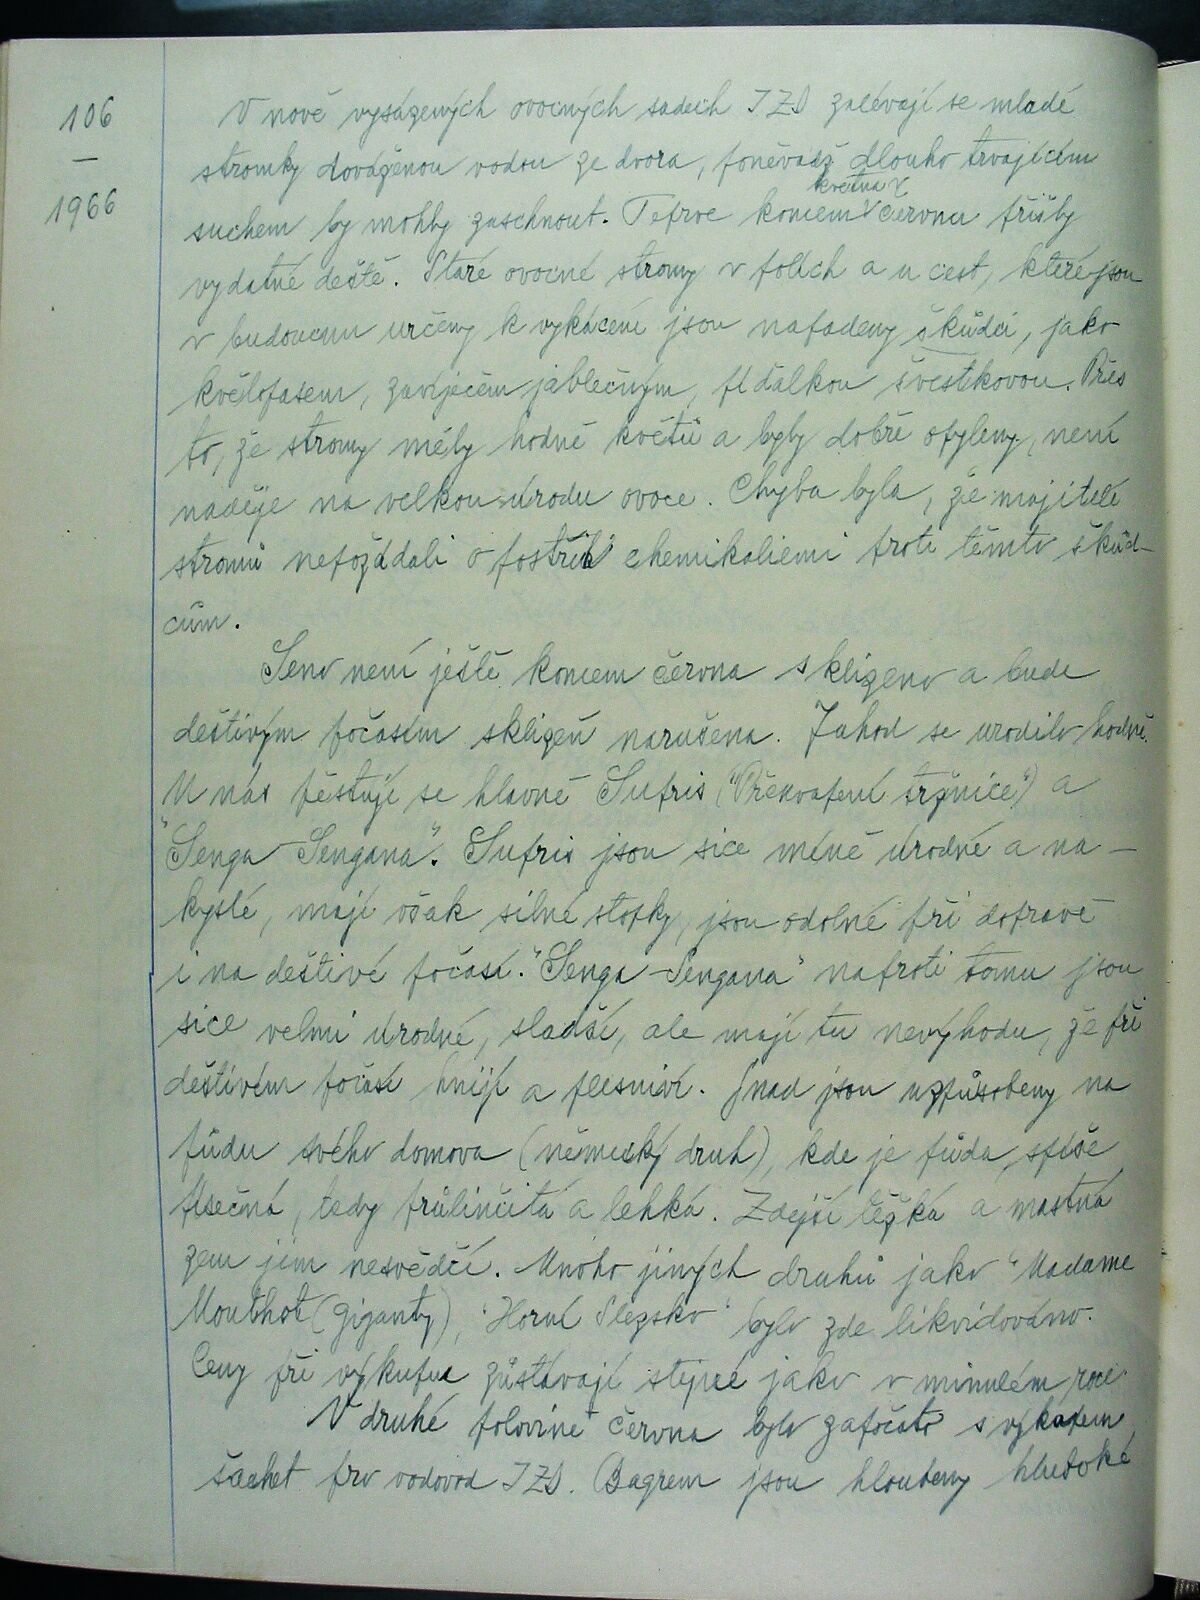 106
—
1966
V nově vysázených ovocných sadech JZD zalévají se mladé
stromky dováženou vodou ze dvora, poněvadž dlouho trvajícím
května
suchem by mohly zaschnout. Teprve koncem června přišly
vydatné deště. Staré ovocné stromy v polích a u cest, které jsou
v budoucnu určeny k vykácení jsou napadeny škůdci, jako
květopasem, zavíječem jablečným, píďalkou švestkovou. Přes
to, že stromy měly hodně květů a byly dobře opyleny, není
naděje na velkou úrodu ovoce. Chyba byla, že majitelé
stromů nepožádali o postřik chemikaliemi proti těmto škůd-
cům.
Seno není ještě koncem června sklizeno a bude
deštivým počasím sklizeň narušena. Jahod se urodilo hodně.
U nás pěstují se hlavně Sufris ("Překvapení tržnice") a
"Senga Sengana". Sufris jsou sice méně úrodné a na-
kyslé, mají však silné stopky, jsou odolné při dopravě
i na deštivé počasí. "Senga-Sengana" naproti tomu jsou
sice velmi úrodné, sladší, ale mají tu nevýhodu, že při
deštivém počasí hnijí a plesniví. Snad jsou uzpůsobeny na
půdu svého domova (německý druh), kde je půda spíše
písečná, tedy průlinčitá a lehká. Zdejší těžká a mastná
zem jim nesvědčí. Mnoho jiných druhů jako "Madame
Mouthot (giganty), "Horní Slezsko" bylo zde likvidováno.
Ceny při výkupu zůstávají stejné jako v minulém roce.
V druhé polovině června bylo započato s výkopem
šachet pro vodovod JZD. Bagrem jsou hloubeny hluboké